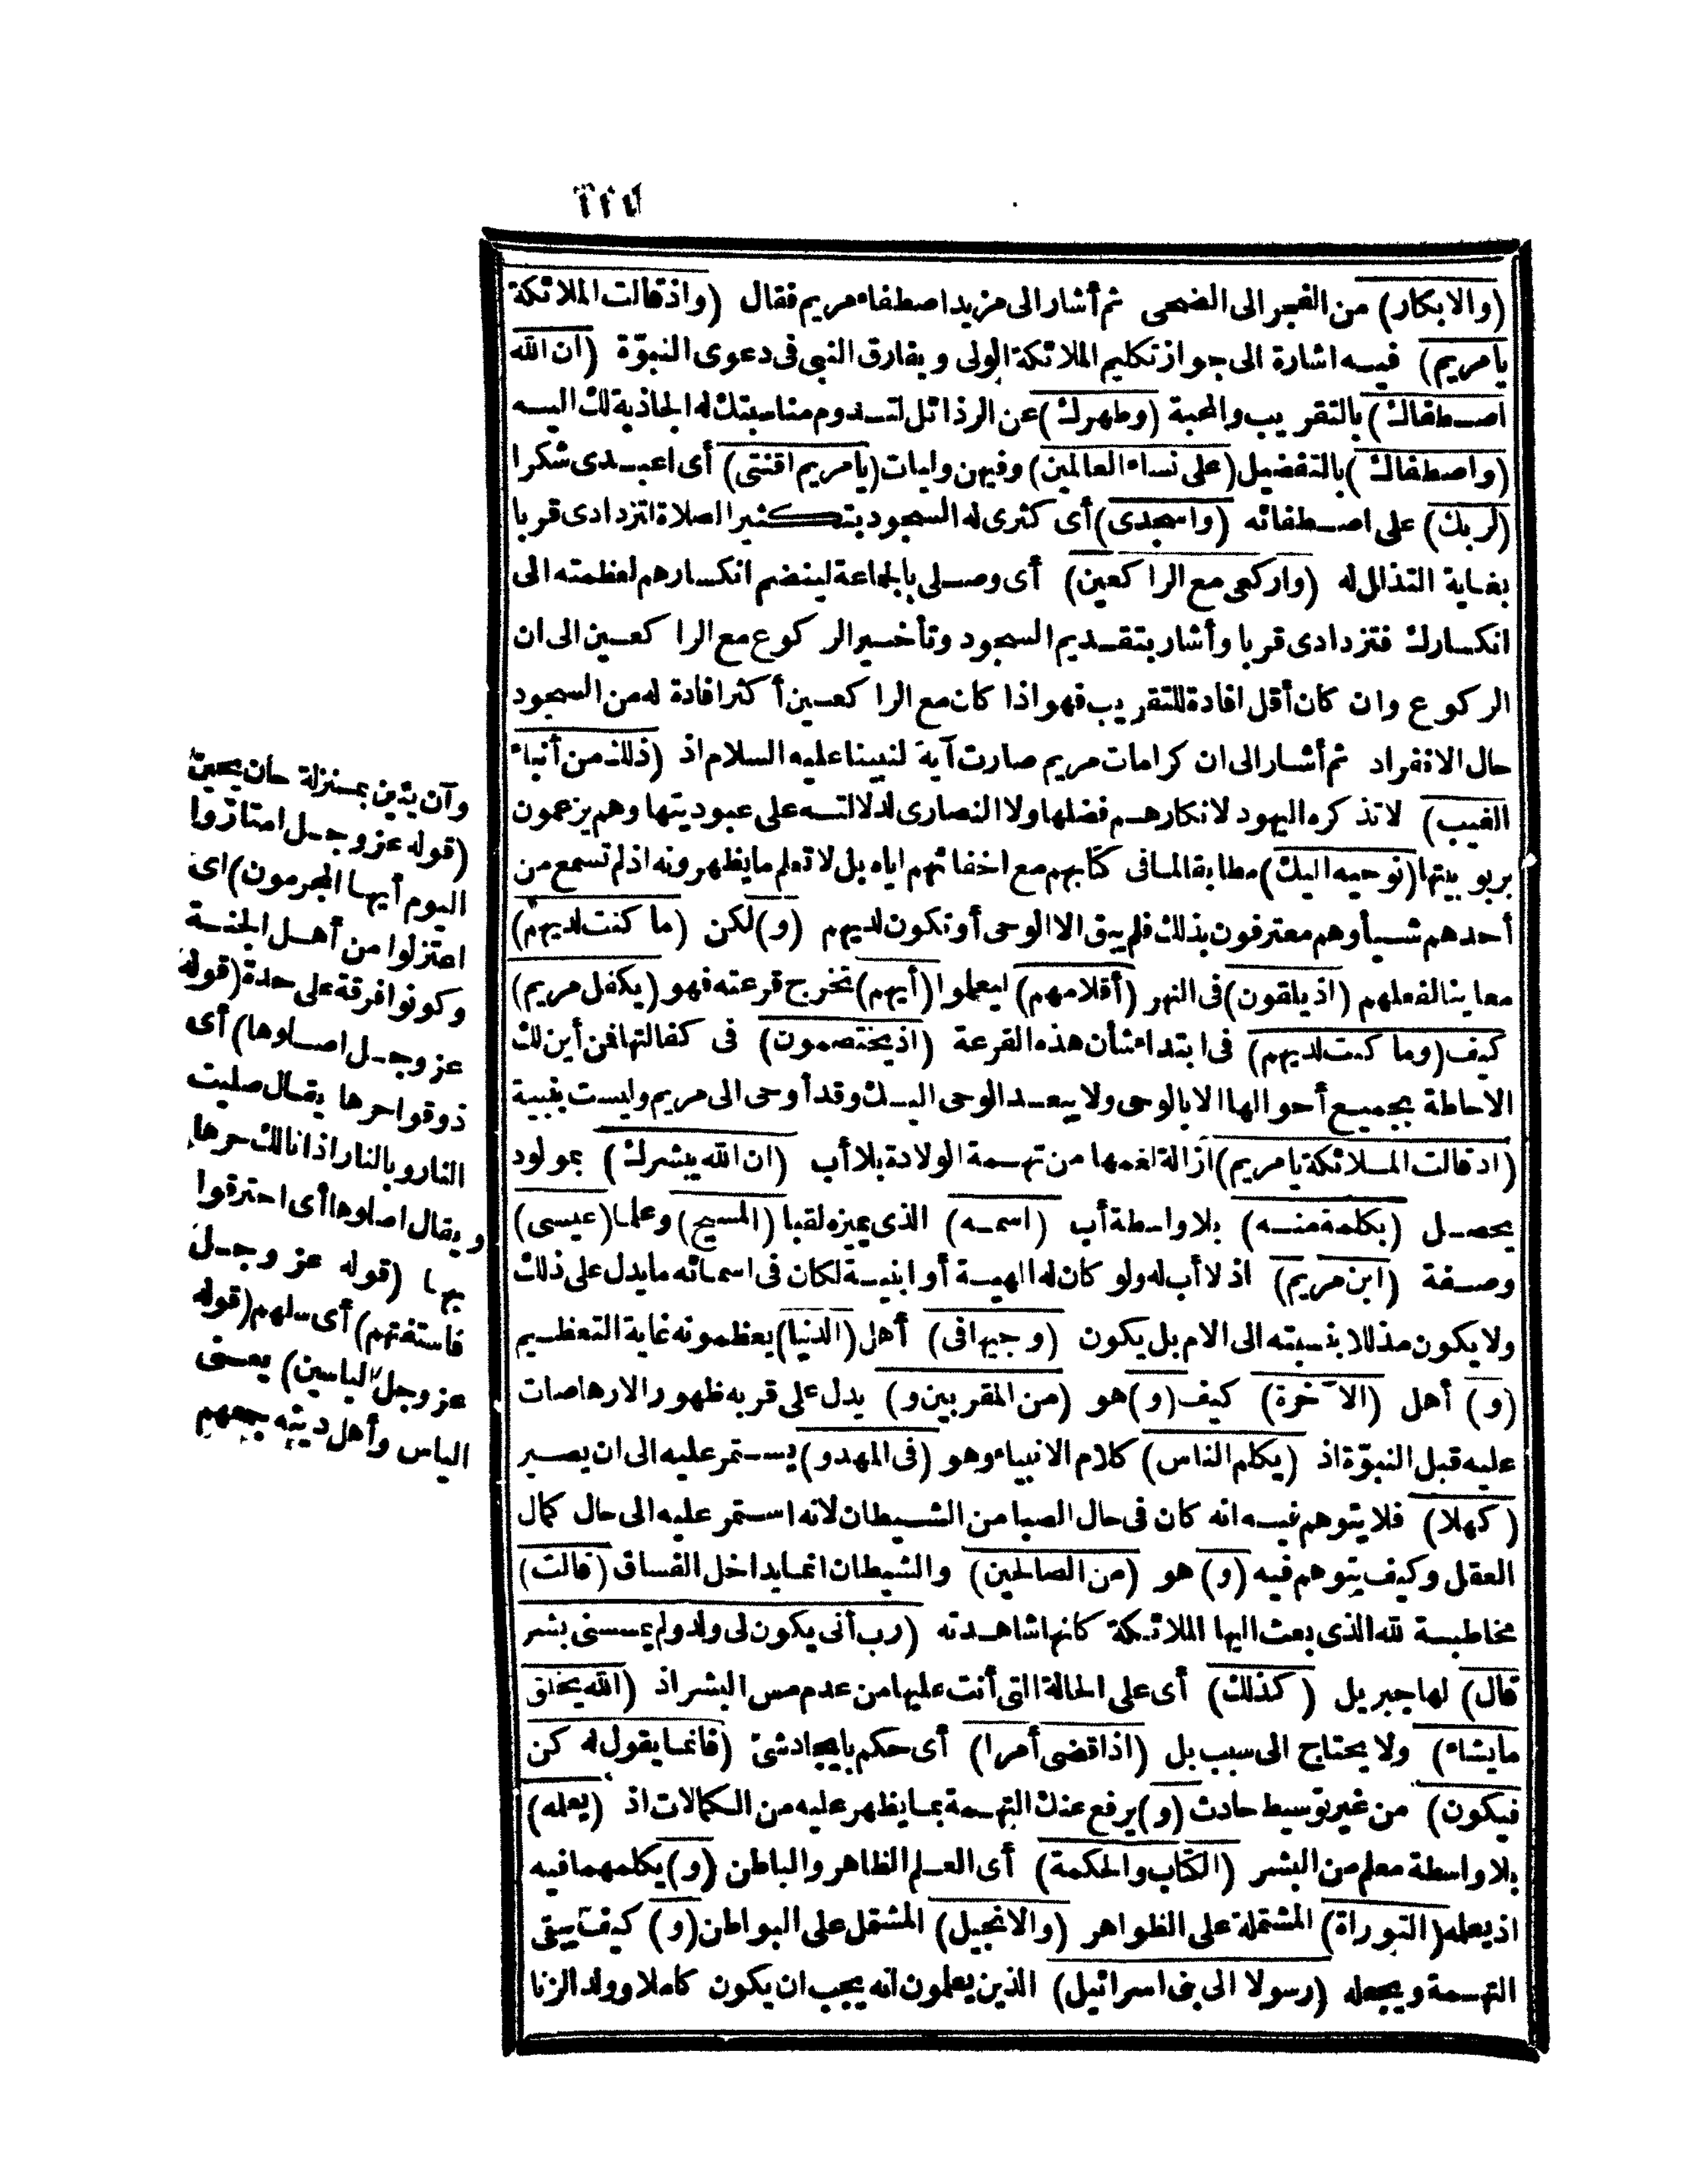 (والابكار) من الفجر الى الضحى ثم أشار الى مزيد اصطفاء مريم فقال (واذ قالت الملائكة
يا مريم) فيه اشارة الى جواز تكليم الملائكة الولى ويفارق النبى فى دعوى النبوّة (ان الله
اصطفاك) بالتقريب والمحبة (وطهرك) عن الرذائل لتدوم مناسبتك له الجاذبة لك اليه
(واصطفاك) بالتفضيل (على نساء العالمين) وفيهن وليات (يا مريم اقنتى) أى اعبدى شكرا
(لربك) على اصطفائه (واسجدى) أى كثرى له السجود بتكثير الصلاة لتزدادى قربا
بغاية التذلل له (واركعى مع الراكعين) أى وصلى بالجماعة لينضم انكسارهم لعظمته الى
انكسارك فتزدادى قربا وأشار بتقديم السجود وتأخير الركوع مع الراكعين الى ان
الركوع وان كان أقل افادة للتقريب فهو اذا كان مع الراكعين أكثر افادة له من السجود
حال الانفراد ثم أشار الى ان كرامات مريم صارت آية لنبينا عليه السلام اذ (ذلك من أنباء
الغيب) لا تذكره اليهود لانكارهم فضلها ولا النصارى لدلالته على عبوديتها وهم يزعمون
بربوبيتها (نوحيه اليك) مطابقا لما فى كتابهم مع اخفائهم اياه بل لا تعلم ما يظهرونه اذ لم تسمع من
أحدهم شيأ وهم معترفون بذلك فلم يبق الا الوحى أو تكون لديهم (و) لكن (ما كنت لديهم)
معاينا لفعلهم (اذ يلقون) فى النهر (أقلامهم) ليعلموا (أيهم) تخرج قرعته فهو (يكفل مريم)
كيف (وما كنت لديهم) فى ابتداء شأن هذه القرعة (اذ يختصمون) فى كفالتها فمن أين لك
الاحاطة بجميع أحوالها الا بالوحى ولا يبعد الوحى اليك وقد أوحى الى مريم وليست بنبية
(اذ قالت الملائكة يا مريم) ازالة لغمها من تهمة الولادة بلا أب (ان الله يبشرك) بمولود
يحصل (بكلمة منه) بلا واسطة أب (اسمه) الذى يميزه لقبا (المسيح) وعلما (عيسى)
وصفة (ابن مريم) اذ لا أب له ولو كان له الهية أو ابنية لكان فى اسمائه ما يدل على ذلك
ولا يكون مذللا بنسبته الى الام بل يكون (وجيها فى) أهل (الدنيا) يعظمونه غاية التعظيم
(و) أهل (الآخرة) كيف (و) هو (من المقربين و) يدل على قربه ظهور الارهاصات
عليه قبل النبوّة اذ (يكلم الناس) كلام الانبياء وهو (فى المهد و) يستمر عليه الى ان يصير
(كهلا) فلا يتوهم فيه انه كان فى حال الصبا من الشيطان لانه استمر عليه الى حال كمال
العقل وكيف يتوهم فيه (و) هو (من الصالحين) والشيطان انما يداخل الفساق (قالت)
مخاطبة لله الذى بعث اليها الملائكة كانها شاهدته (رب أنى يكون لى ولد ولم يمسسنى بشر
قال) لها جبريل (كذلك) أى على الحالة التى أنت عليها من عدم مس البشر اذ (الله يخلق
ما يشاء) ولا يحتاج الى سبب بل (اذا قضى أمرا) أى حكم بايجاد شئ (فانما يقول له كن
فيكون) من غير توسيط حادث (و) يرفع عنك التهمة بما يظهر عليه من الكمالات اذ (يعلمه)
بلا واسطة معلم من البشر (الكتاب والحكمة) أى العلم الظاهر والباطن (و) يكلمهما فيه
اذ يعلمه (التوراة) المشتملة على الظواهر (والانجيل) المشتمل على البواطن (و) كيف يبقى
التهمة ويجعله (رسولا الى بنى اسرائيل) الذين يعلمون انه يجب ان يكون كاملا وولد الزنا
وآن يئين بمنزلة حان يحين
(قوله عز وجل امتازوا
اليوم أيها المجرمون) اى
اعتزلوا من أهل الجنة
وكونوا فرقة على حدة (قوله
عز وجل اصلوها) أى
ذوقوا حرها يقال صليت
النار وبالنار اذا نالك حرها
ويقال اصلوها أى احترقوا
بها (قوله عز وجل
فاستفتهم) أى سلهم (قوله
عز وجل الياسين) يعنى
الياس وأهل دينه جمعهم